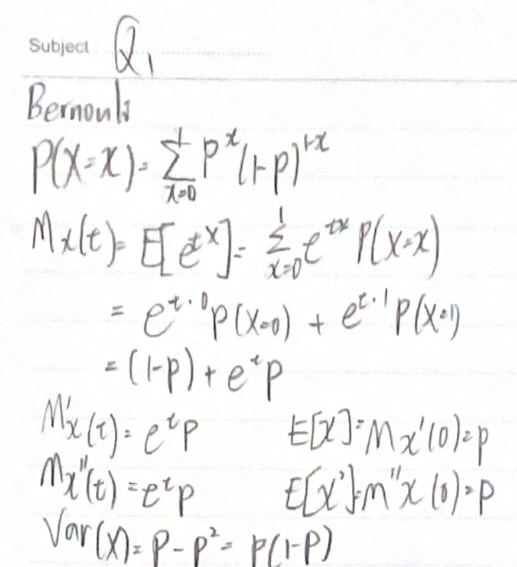 Subject : Q1
Bernouli
P(X=x) = \sum_{x=0}^{1} p^x (1-p)^{1-x}
M_x(t) = E[e^{tX}] = \sum_{x=0}^{1} e^{tx} P(X=x)
= e^{t·0} P(X=0) + e^{t·1} P(X=1)
= (1-p) + e^t p
M'_x(t) = e^t p E[X] = M_x'(0) = p
M_x''(t) = e^t p E[X²] = M''_x(0) = p
Var(X) = p - p² = p(1-p)